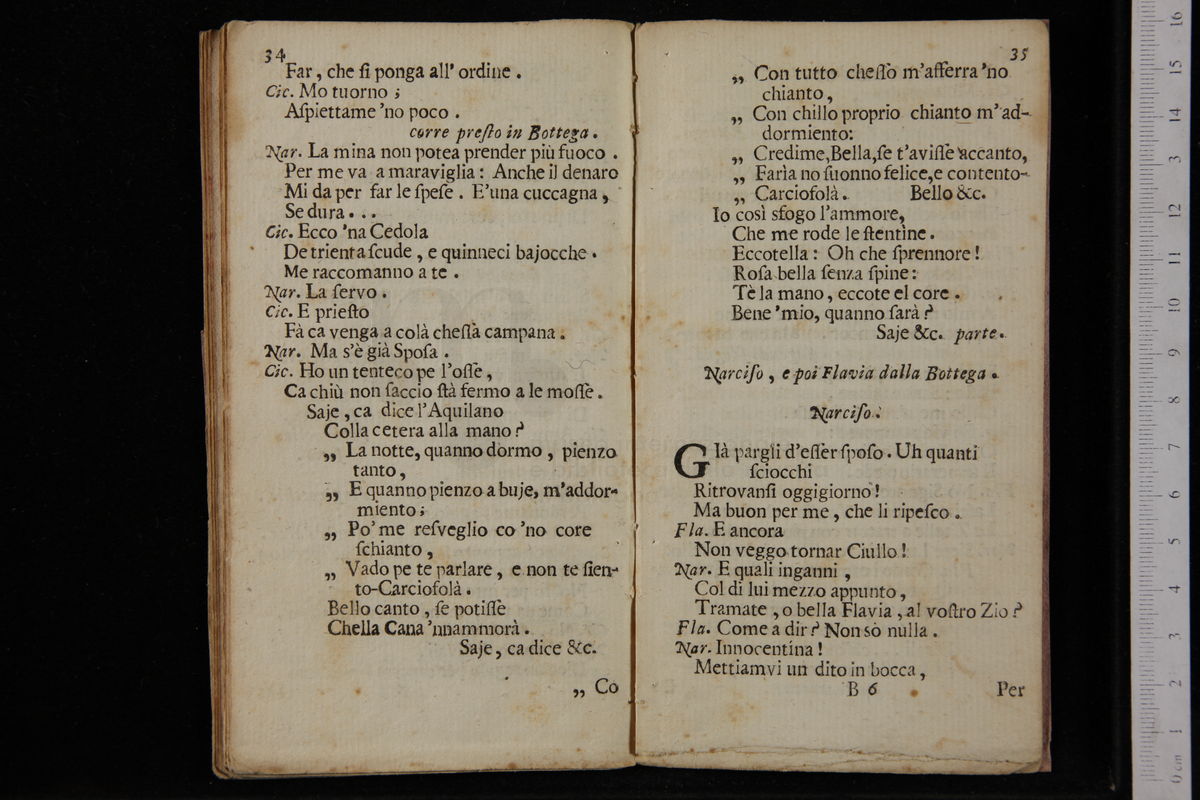 34
Far, che ſi ponga all' ordine.
Cic. Mo tuorno;
Aſpiettame 'no poco.
corre preſto in Bottega.
Nar. La mina non potea prender più fuoco.
Per me va a maraviglia: Anche il denaro
Mi da per far le ſpeſe. E' una cuccagna,
Se dura...
Cic. Ecco 'na Cedola
De trienta ſcude, e quinneci bajocche.
Me raccomanno a te.
Nar. La ſervo.
Cic. E prieſto
Fà ca venga a colà cheſſa campana.
Nar. Ma s'è già Spoſa.
Cic. Ho un tenteco pe l'oſſe,
Ca chiù non faccio ſtà fermo a le moſſe.
Saje, ca dice l'Aquilano
Colla cetera alla mano?
„ La notte, quanno dormo, pienzo
tanto,
„ E quanno pienzo a buje, m'addor-
miento;
„ Po' me reſveglio co 'no core
ſchianto,
„ Vado pe te parlare, e non te ſien-
to-Carciofolà.
Bello canto, ſe potiſſe
Chella Cana 'nnammorà.
Saje, ca dice &c.
„ Co
35
„ Con tutto cheſſo m'afferra 'no
chianto,
„ Con chillo proprio chianto m'ad-
dormiento:
„ Credime, Bella, ſe t'aviſſe accanto,
„ Farìa no ſuonno felice, e contento-
„ Carciofolà. Bello &c.
Io così sfogo l'ammore,
Che me rode le ſtentine.
Eccotella: Oh che ſprennore!
Roſa bella ſenza ſpine:
Tè la mano, eccote el core.
Bene 'mio, quanno ſarà?
Saje &c. parte.
Narciſo, e poi Flavia dalla Bottega.
Narciſo.
Già pargli d'eſſer ſpoſo. Uh quanti
ſciocchi
Ritrovanſi oggigiorno!
Ma buon per me, che li ripeſco.
Fla. E ancora
Non veggo tornar Ciullo!
Nar. E quali inganni,
Col di lui mezzo appunto,
Tramate, o bella Flavia, al voſtro Zio?
Fla. Come a dir? Non sò nulla.
Nar. Innocentina!
Mettiamvi un dito in bocca,
B 6 Per
16
15
14
13
12
11
10
9
8
7
6
5
4
3
2
1
0 cm